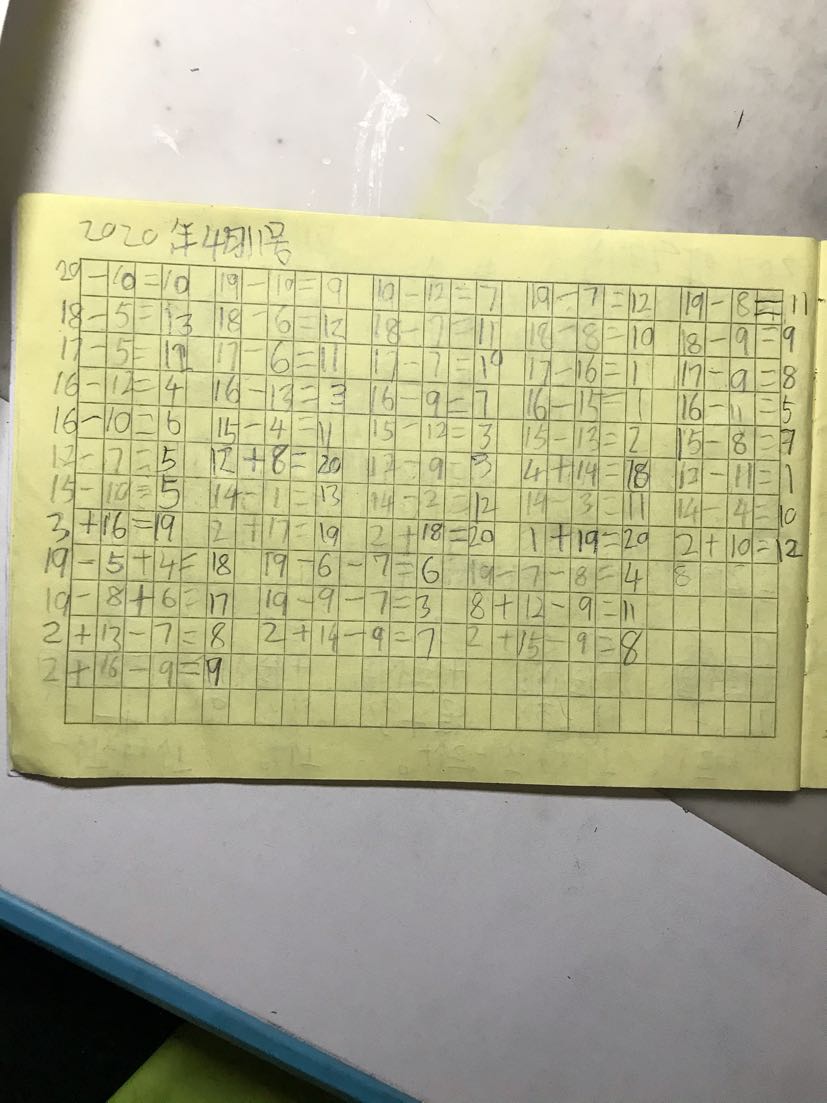 2020年4月11号
20-10=10 19-10=9 19-12=7 19-7=12 19-8=11
18-5=13 18-6=12 18-7=11 18-8=10 18-9=9
17-5=12 17-6=11 17-7=10 17-16=1 17-9=8
16-12=4 16-13=3 16-9=7 16-15=1 16-11=5
16-10=6 15-4=11 15-12=3 15-13=2 15-8=7
12-7=5 12+8=20 12-9=3 4+14=18 12-11=1
15-10=5 14-1=13 14-2=12 14-3=11 14-4=10
3+16=19 2+17=19 2+18=20 1+19=20 2+10=12
19-5+4=18 19-6-7=6 19-7-8=4 8
19-8+6=17 19-9-7=3 8+12-9=11
2+13-7=8 2+14-9=7 2+15-9=8
2+16-9=9